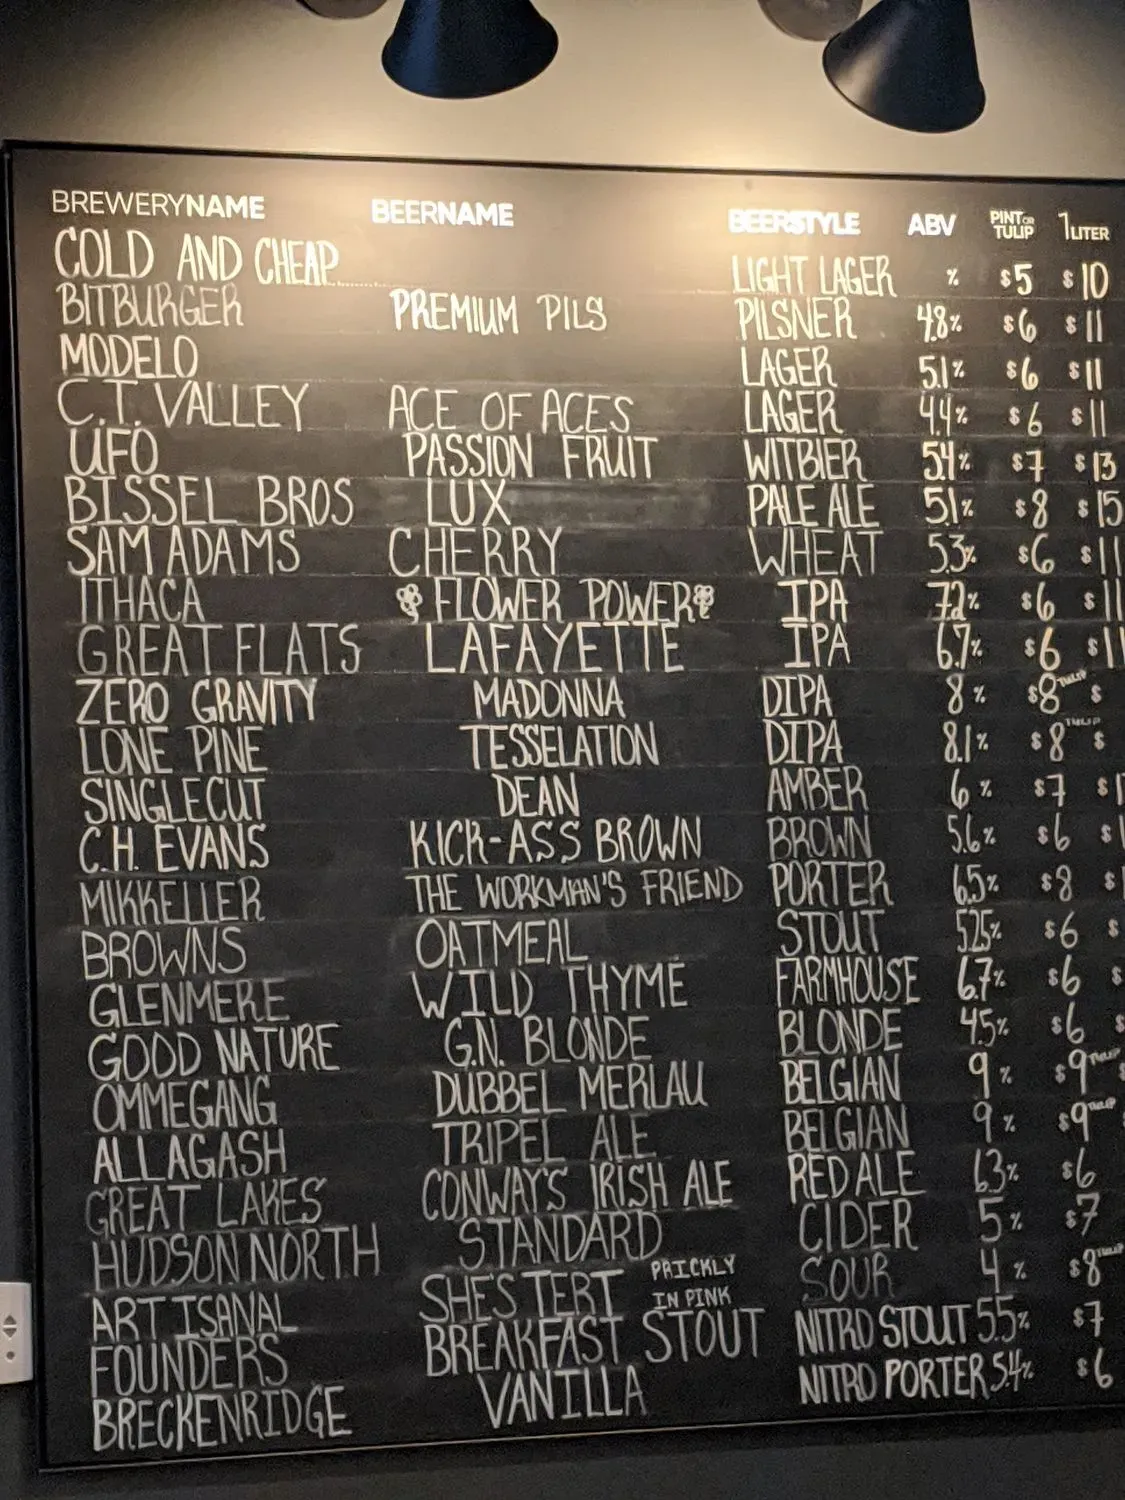 BREWERYNAME BEERNAME BEERSTYLE ABV PINT OR TULIP 1 LITER
COLD AND CHEAP LIGHT LAGER % $5 $10
BITBURGER PREMIUM PILS PILSNER 4.8% $6 $11
MODELO LAGER 5.1% $6 $11
C.T. VALLEY ACE OF ACES LAGER 4.4% $6 $11
UFO PASSION FRUIT WITBIER 5.4% $7 $13
BISSEL BROS LUX PALE ALE 5.1% $8 $15
SAM ADAMS CHERRY WHEAT 5.3% $6 $11
ITHACA FLOWER POWER IPA 7.2% $6 $11
GREAT FLATS LAFAYETTE IPA 6.7% $6 $11
ZERO GRAVITY MADONNA DIPA 8% $8 TULIP $
LONE PINE TESSELATION DIPA 8.1% $8 TULIP $
SINGLECUT DEAN AMBER 6% $7 $1
C.H. EVANS KICK-ASS BROWN BROWN 5.6% $6 $1
MIKKELLER THE WORKMAN'S FRIEND PORTER 6.5% $8 $
BROWNS OATMEAL STOUT 5.25% $6 $
GLENMERE WILD THYME FARMHOUSE 6.7% $6 $
GOOD NATURE G.N. BLONDE BLONDE 4.5% $6 $
OMMEGANG DUBBEL MERLAU BELGIAN 9% $9 TULIP
ALLAGASH TRIPEL ALE BELGIAN 9% $9 TULIP
GREAT LAKES CONWAY'S IRISH ALE RED ALE 6.3% $6
HUDSON NORTH STANDARD CIDER 5% $7
ARTISANAL SHE'S TERT PRICKLY IN PINK SOUR 4% $8 TULIP
FOUNDERS BREAKFAST STOUT NITRO STOUT 5.5% $7
BRECKENRIDGE VANILLA NITRO PORTER 5.4% $6